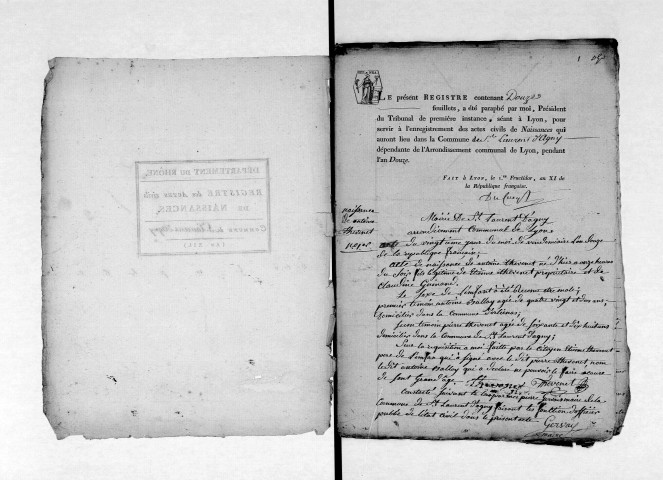 DÉPARTEMENT DU RHÔNE.
REGISTRE des Actes civils
DE NAISSANCES.
COMMUNE de St Laurent d'agny
1
LE présent REGISTRE contenant Douze
feuillets, a été paraphé par moi, Président
du Tribunal de première instance, séant à Lyon, pour
servir à l'enregistrement des actes civils de Naissances qui
auront lieu dans la Commune de St Laurent d'Agny
dépendante de l'Arrondissement communal de Lyon, pendant
l'an Douze.
FAIT à LYON, le 1.er Fructidor, an XI de
la République française.
naissance
de antoine
thevenet
Mairie De St Laurent Dagny
arrondiment Communal de Lyon
acte du vingt unne jour du moi de vendemiaire l'an douze
de la republique français;
acte de naissance de antoine thevenet ne Thier a onze heures
du Soir fils legitime de Etienne thevenet propriétaire et de
claudine
Le Sexe de l'enfant a été reconu etre male;
premier temoin antoine Balley agée de quatre vingt et dun ans,
domicilies dans la commune
Second temoin pierre thevenet agée de soixante et dix huit ans
domicilies dans la commune de St Laurent Dagny;
Sur la requisition a moi faitte par le citoyen Etienne thevenet
pere de l'enfan qui a signé avec le dit pierre thevenet non
le dit antoine Balley qui a declaré ne pouvoir le faire a cause
de sont Grand age. Thevenet thevenet
Constaté suivant la loi par moi pierre maire de la
Commune de St Laurent Dagny faisant les fonction d'officier
public de l'état civil
maire